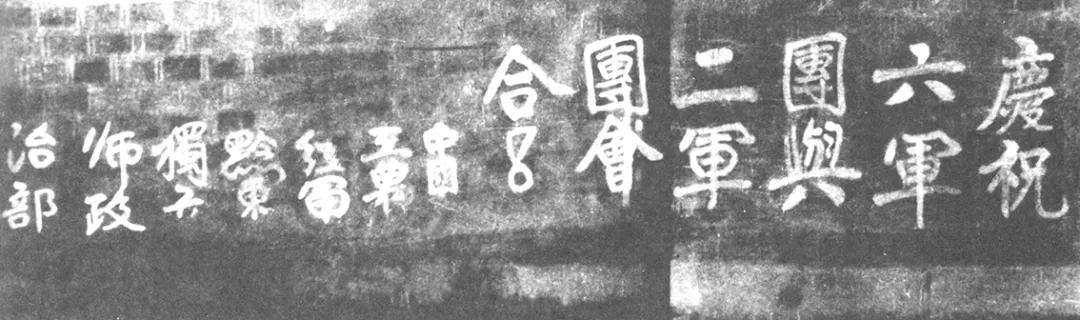 慶祝
六軍
團與
二軍
團會
合！
中國
工農
紅軍
黔東
獨立
师政
治部